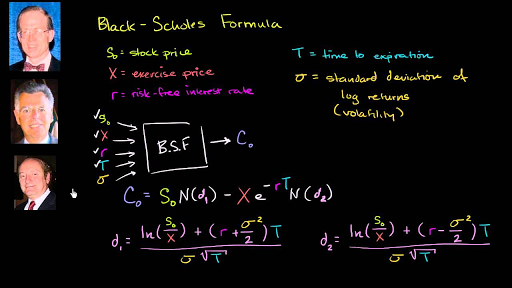 Black-Scholes Formula
S₀ = stock price
X = exercise price
r = risk-free interest rate
T = time to expiration
σ = standard deviation of
log returns
(volatility)
✓S₀
✓X
✓r
✓T
σ
B.S.F
C₀
C₀ = S₀N(d₁) - Xe^(-rT)N(d₂)
d₁ = (ln(S₀/X) + (r + σ²/2)T) / (σ√T)
d₂ = (ln(S₀/X) + (r - σ²/2)T) / (σ√T)